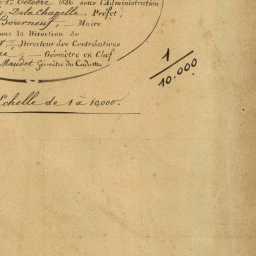 Octobre 1826 sous l'Administration
De la Chapelle, Préfet,
Bourneuf, — Maire
sous la Direction de
Directeur des Contributions
— Géomètre en Chef
Maudet Géomètre du Cadastre
1
10.000
Echelle de 1 à 10.000.